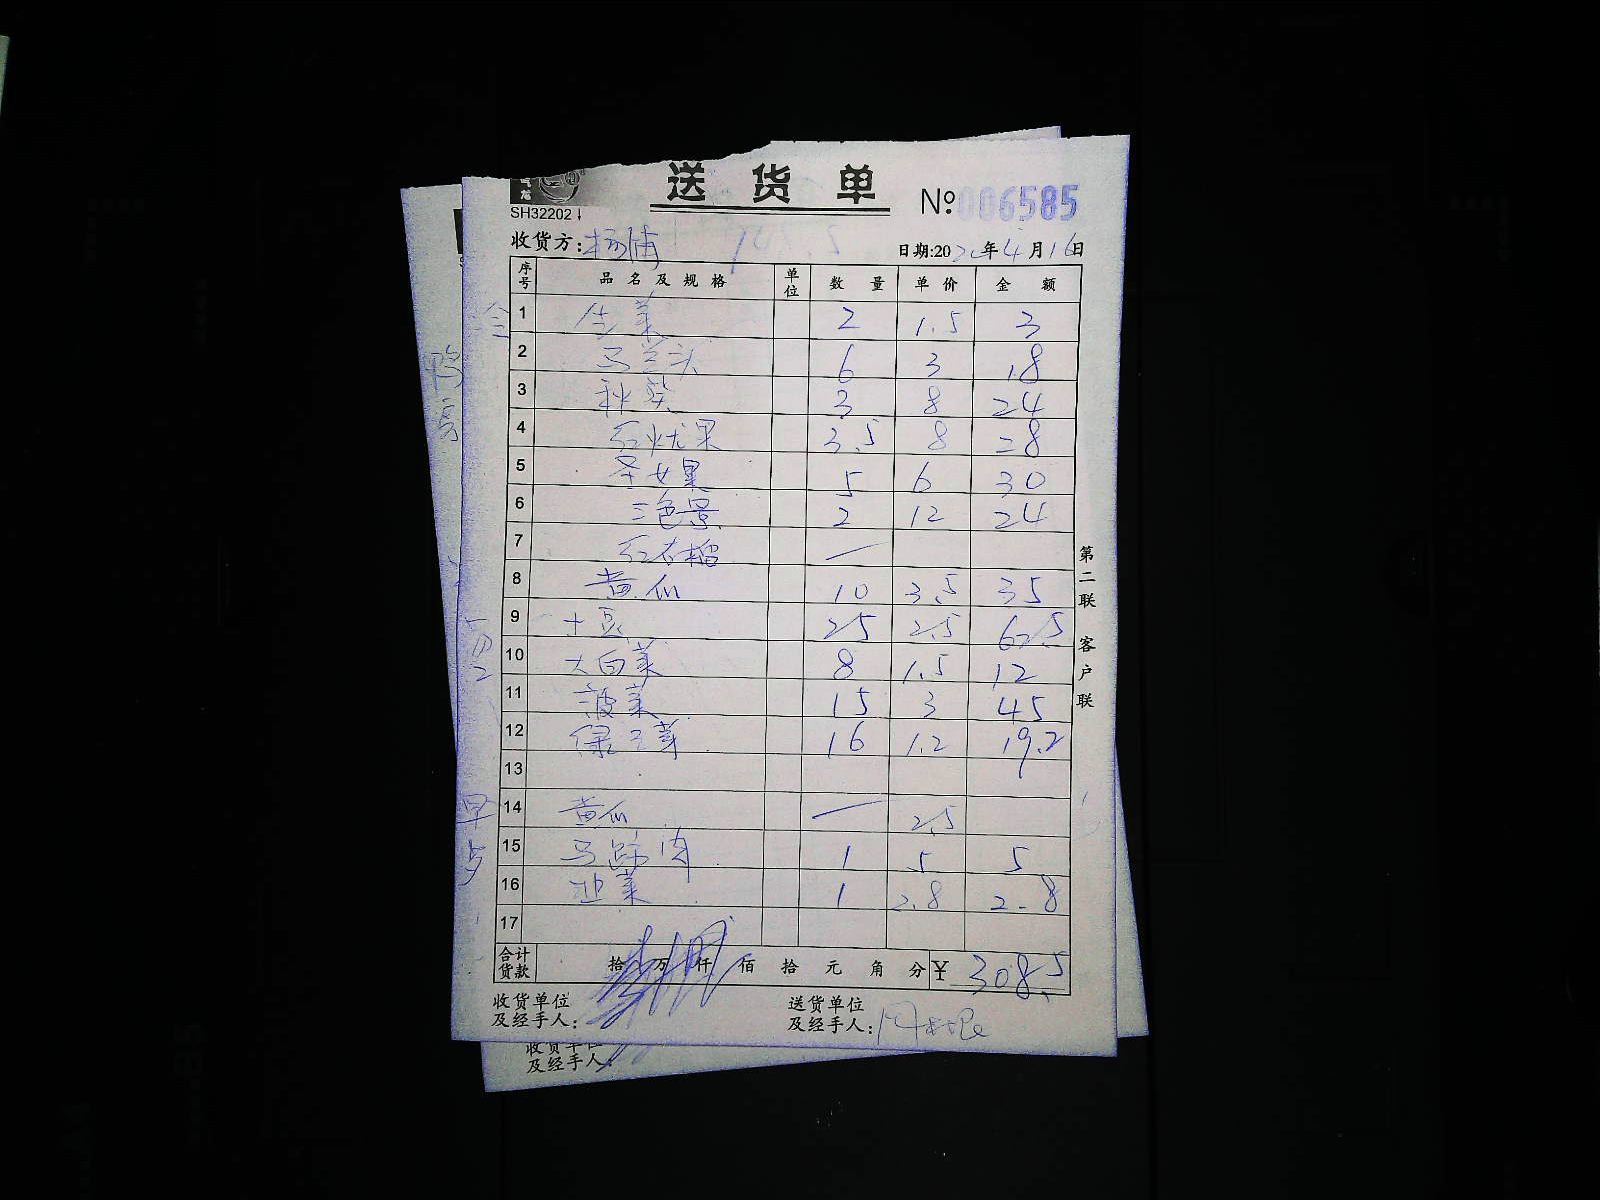 送货单
№ 006585
SH32202
收货方:杨浦
日期:202 年4月16日
序号 品名及规格 单位 数量 单价 金额
1 生菜 2 1.5 3
2 马兰头 6 3 18
3 秋葵 3 8 24
4 红 果 3.5 8 28
5 圣女果 5 6 30
6 三色景 2 12 24
7 红 —
8 黄瓜 10 3.5 35
9 土豆 25 2.5 62.5
10 大白菜 8 1.5 12
11 菠菜 15 3 45
12 绿豆芽 16 1.2 19.2
13
14 黄瓜 — 2.5
15 马蹄肉 1 5 5
16 韭菜 1 2.8 2.8
17
合计货款 拾 万 仟 佰 拾 元 角 分 ¥ 308.5
收货单位及经手人:
送货单位及经手人:
第二联 客户联
早
收货单位
及经手人